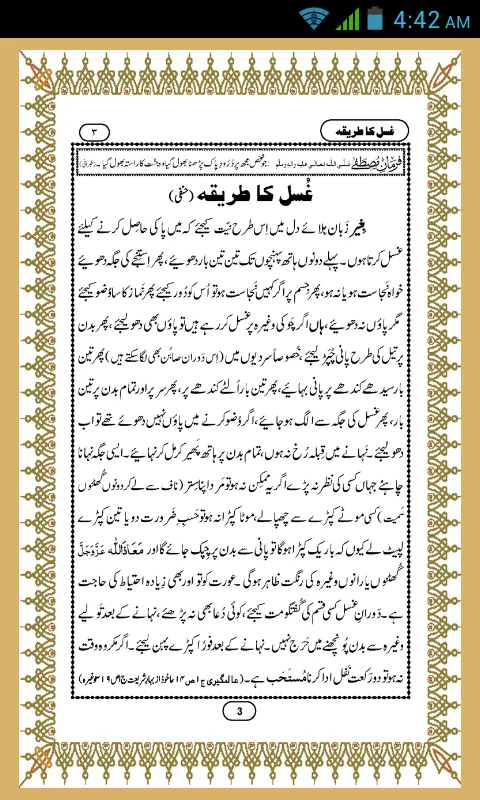 4:42 AM
غسل کا طریقہ
۳
فرمانِ مصطفےٰ صلی اللہ تعالیٰ علیہ والہ وسلم : جو شخص مجھ پر دُرُودِ پاک پڑھنا بھول گیا وہ جنّت کا راستہ بھول گیا۔ (طبرانی)
غُسل کا طریقہ (حنفی)
بِغیر زَبان ہِلائے دل میں اِس طرح نیّت کیجئے کہ میں پاکی حاصل کرنے کیلئے
غسل کرتا ہوں۔ پہلے دونوں ہاتھ پہنچوں تک تین تین بار دھوئیے، پھر اِستنجے کی جگہ دھوئیے
خواہ نَجاست ہو یا نہ ہو، پھر جسم پر اگر کہیں نَجاست ہو تو اُس کو دُور کیجئے پھر نَماز کا سا وُضو کیجئے
مگر پاؤں نہ دھوئیے، ہاں اگر چوکی وغیرہ پر غسل کر رہے ہیں تو پاؤں بھی دھو لیجئے، پھر بدن
پر تیل کی طرح پانی چُپَڑ لیجئے، خُصوصاً سردیوں میں (اِس دَوران صابُن بھی لگا سکتے ہیں) پھر تین
بار سیدھے کندھے پر پانی بہائیے، پھر تین بار اُلٹے کندھے پر، پھر سر پر اور تمام بدن پر تین
بار، پھر غسل کی جگہ سے الگ ہو جائیے، اگر وُضو کرنے میں پاؤں نہیں دھوئے تھے تو اب
دھو لیجئے۔ نَہانے میں قِبلہ رُخ نہ ہوں، تمام بدن پر ہاتھ پھیر کر مل کر نہائیے۔ ایسی جگہ نہانا
چاہئے جہاں کسی کی نظر نہ پڑے اگر یہ ممکن نہ ہو تو مَرد اپنا سِتر (ناف سے لے کر دونوں گھُٹنوں
سَمیت) کسی موٹے کپڑے سے چھپا لے، موٹا کپڑا نہ ہو تو حسبِ ضَرورت دو یا تین کپڑے
لپیٹ لے کیوں کہ باریک کپڑا ہوگا تو پانی سے بدن پر چِپک جائے گا اور مَعَاذَاللّٰہ عَزَّوَجَلَّ
گھُٹنوں یا رانوں وغیرہ کی رنگت ظاہر ہوگی۔ عورت کو تو اور بھی زِیادہ احتیاط کی حاجت
ہے۔ دَورانِ غسل کسی قسم کی گفتگو مت کیجئے، کوئی دُعا بھی نہ پڑھئے، نہانے کے بعد تَولیے
وغیرہ سے بدن پُونچھنے میں حَرَج نہیں۔ نہانے کے بعد فوراً کپڑے پہن لیجئے۔ اگر مکروہ وقت
نہ ہو تو دو رَکعت نَفل ادا کرنا مُستَحَب ہے۔ (عالمگیری ج۱ ص۱۴ ماخوذ از بہارِ شریعت ج۱ ص۳۱۹ وغیرہ)
3